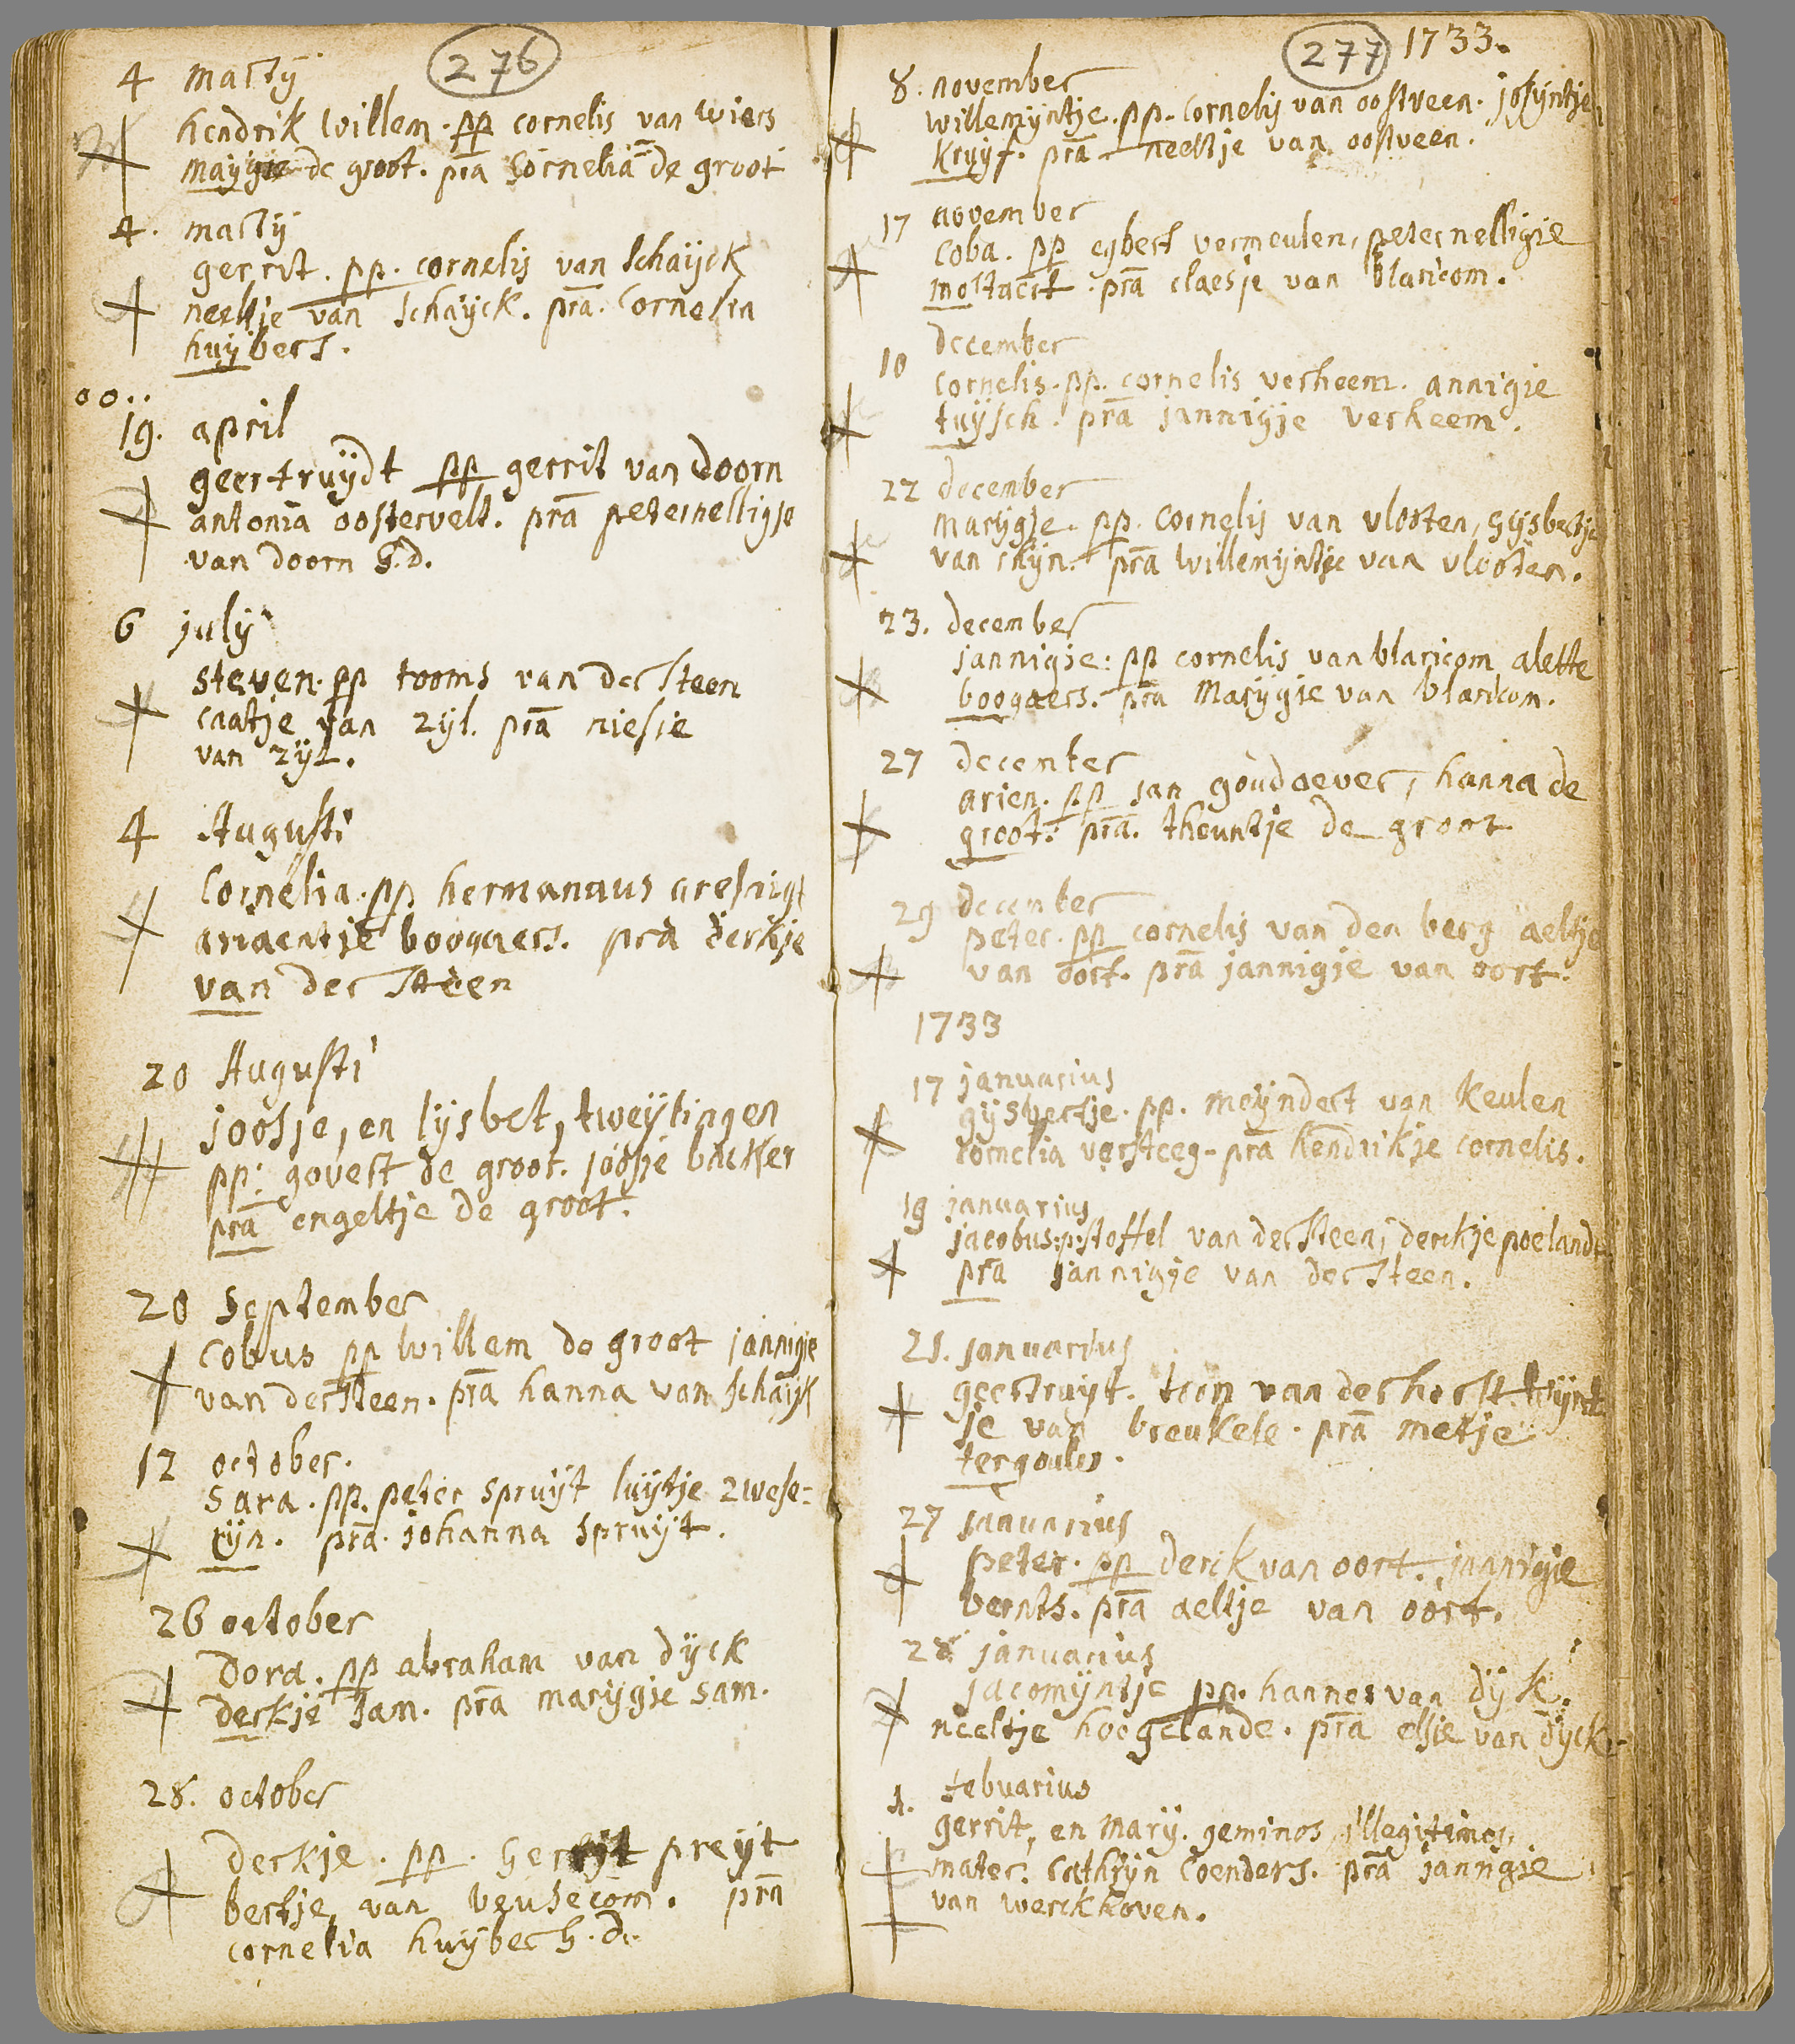 276
4 martij
hendrik willem. pp cornelis van wiers
marijgie de groot. pra cornelia de groot
4. martij
gerrit. pp. cornelis van schaijck
neeltje van schaijck. pra. cornelia
huijbers.
00..
19. april
geertruijdt pp gerrit van doorn
antonia oostervelt. pra peternelligje
van doorn G.d.
6 julij
steven. pp tooms van der steen
caatje van zijl. pra niesie
van zijl.
4 Augusti
Cornelia. pp hermannus
ariaentje boogaers. pra derkje
van der steen
20 Augusti
joosje, en lijsbet, tweijlingen
pp: govert de groot. joosje backer
pra engeltje de groot.
20 September
cobus pp willem de groot jannigje
van der steen. pra hanna van schaijk
12 october.
Sara. pp. peter spruijt luijtje zwese=
rijn. pra. johanna spruijt.
26 october
Dora. pp abraham van dijck
derkje sam. pra marijgje sam.
28. october
derkje. pp. Gerrijt preijt
bertje van beusecom. pra
cornelia huijbers G. d.
277 1733.
8. november
willemijntje. pp. cornelis van oostveen. josijntje
kruijf. pra. neeltje van oostveen.
17 november
Coba. pp egbert vermeulen, peternelligie
mostaert. pra claesje van blaricom.
10 december
cornelis. pp. cornelis verheem. annigie
tuijsch. pra jannigje verheem.
22 december
marijgje. pp. cornelis van vlooten, gijsbertje
van rhijn. pra willemijntje van vlooten.
23. december
jannigje: pp cornelis van blaricom alette
boogaers. pra Marijgie van blaricom.
27 december
arien. pp jan goudoever, hanna de
groot. pra. theuntje de groot
29 december
peter. pp cornelis van den berg aeltje
van oort. pra jannigje van oort.
1733
17 januarius
gijsbertje. pp. meijndert van keulen
cornelia versteeg. pra hendrikje cornelis.
19 januarius
jacobus: p: stoffel van der steen, derckje poelandt
pra jannigje van der steen.
21. januarius
geertruijt. toon van der horst. trijnt
je van breukele. pra metje
tergouw.
27 januarius
peter. pp derck van oort. jannigie
bernts. pra aeltje van oort.
28 januarius
jacomijntje pp. hannes van dijk.
neeltje hoogelande. pra elsie van dijck.
1. februarius
gerrit, en marij. geminos illegitimos.
mater. cathrijn coenders. pra jannigie
van werckhoven.